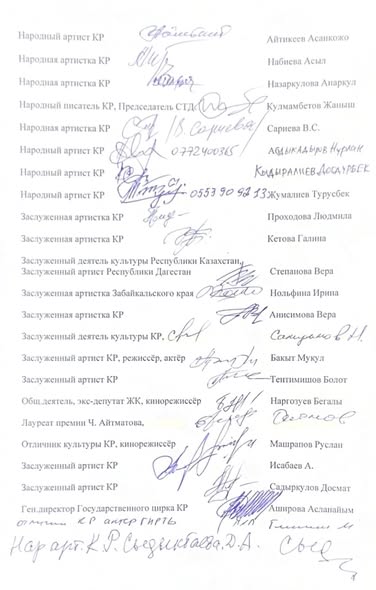 Народный артист КР Айтикеев Асанкожо
Народная артистка КР Набиева Асыл
Народная артистка КР Назаркулова Анаркул
Народный писатель КР, Председатель СТД Кулмамбетов Жаныш
Народная артистка КР /В. Сариева/ Сариева В.С.
Народный артист КР 0772400365 Абдыкадыров Нурлан
Народный артист КР Кыдыралиев Досдурбек
Народный артист КР 0553 90 92 13 Жумалиев Турусбек
Заслуженная артистка КР Проходова Людмила
Заслуженная артистка КР Кетова Галина
Заслуженный деятель культуры Республики Казахстан,
Заслуженный артист Республики Дагестан Степанова Вера
Заслуженная артистка Забайкальского края Нольфина Ирина
Заслуженная артистка КР Анисимова Вера
Заслуженный деятель культуры КР,
Заслуженный артист КР, режиссёр, актёр Бакыт Мукул
Заслуженный артист КР Тентимишов Болот
Общ.деятель, экс-депутат ЖК, кинорежиссёр Наргозуев Бегалы
Лауреат премии Ч. Айтматова,
Отличник культуры КР, кинорежиссёр Машрапов Руслан
Заслуженный артист КР Исабаев А.
Заслуженный артист КР Садыркулов Досмат
Ген.директор Государственного цирка КР Аширова Асланайым
отличник КР актер
Нар арт. К.Р. Сыдыкбаева. Д.А.